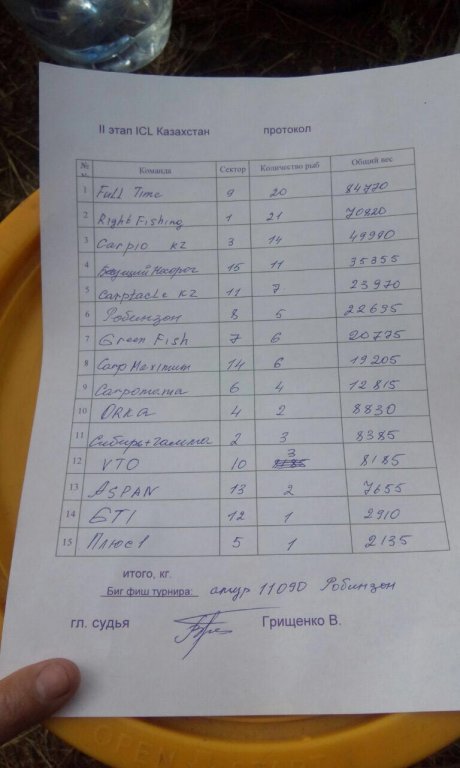 II этап ICL Казахстан протокол
№ Команда Сектор Количество рыб Общий вес
1 Full Time 9 20 84770
2 Right Fishing 1 21 70820
3 Carpio kz 3 14 49990
4 15 11 35355
5 Carptacle kz 11 7 23970
6 Робинзон 8 5 22695
7 Green Fish 7 6 20775
8 Carp Maximum 14 6 19205
9 Carpomania 6 4 12815
10 ORKA 4 2 8830
11 Сибирь+гамма 2 3 8385
12 VTO 10 3 8185
13 ASPAN 13 2 7655
14 БТI 12 1 2910
15 Плюс 1 5 1 2135
итого, кг.
Биг фиш турнира: амур 11090 Робинзон
гл. судья Грищенко В.
OPEN